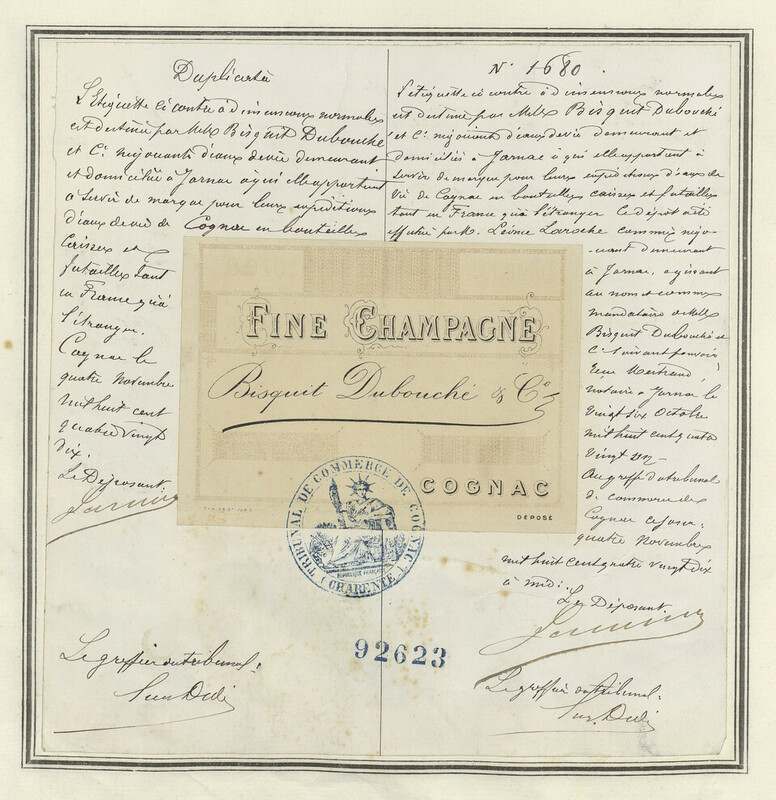 Duplicata
L'Etiquette ci contre à dimensions normales
est destinée par MM Bisquit Dubouché
et Cie négociants d'eaux de vie demeurant
et domiciliés à Jarnac à qui elle appartient
à servir de marque pour leurs expéditions
d'eaux de vie de Cognac en bouteilles
caisses et
futailles tant
en France qu'à
l'étranger.
Cognac le
quatre Novembre
mil huit cent
quatre vingt
dix.
Le Déposant
N° 1680.
L'étiquette ci contre à dimensions normales
est destinée par MM Bisquit Dubouché
et Cie négociants d'eaux de vie demeurant et
domiciliés à Jarnac à qui elle appartient à
servir de marque pour leurs expéditions d'eaux de
Vie de Cognac en bouteilles caisses et futailles
tant en France qu'à l'étranger Ce dépôt a été
effectué par M. Léonce Laroche commis négo-
-ciant demeurant
à Jarnac, agissant
au nom et comme
mandataire de MM
Bisquit Dubouché et
Cie suivant pouvoir
notaire à Jarnac le
vingt six Octobre
mil huit cent quatre
vingt dix
Au greffe du tribunal
de commerce de
Cognac ce jour
quatre Novembre
mil huit cent quatre vingt dix
à midi.
Le Déposant
FINE CHAMPAGNE
Bisquit Dubouché & Co
COGNAC
DÉPOSÉ
TRIBUNAL DE COMMERCE DE COGNAC
RÉPUBLIQUE FRANÇAISE
(CHARENTE)
92623
Le greffier du tribunal:
Le greffier du tribunal: